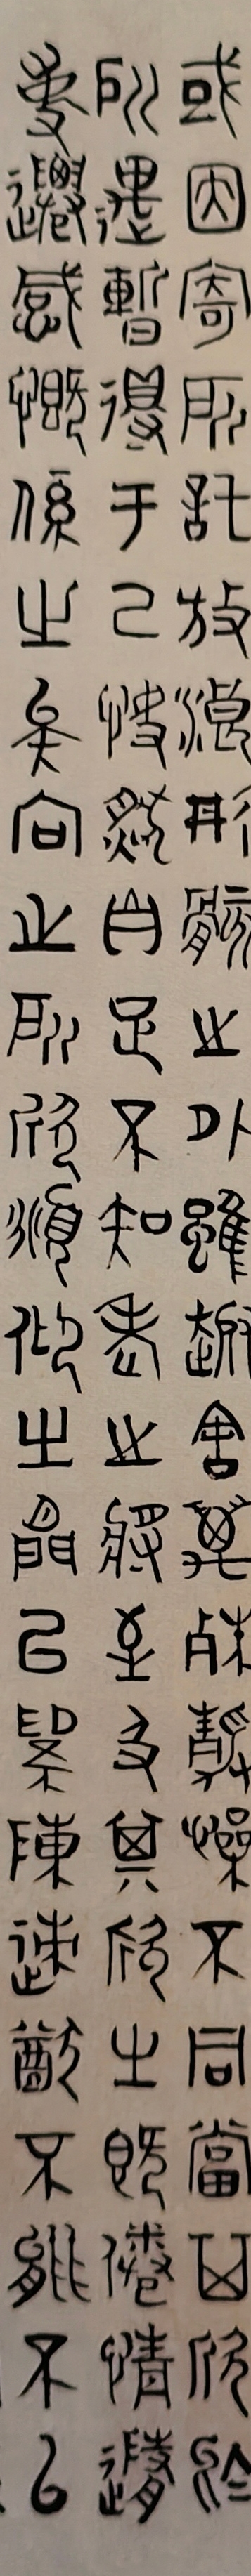 或因寄所託放浪形骸之外雖趣舍萬殊靜躁不同當其欣於
所遇暫得于己快然自足不知老之將至及其所之既倦情隨
事遷感慨係之矣向之所欣俛仰之間已為陳迹猶不能不以